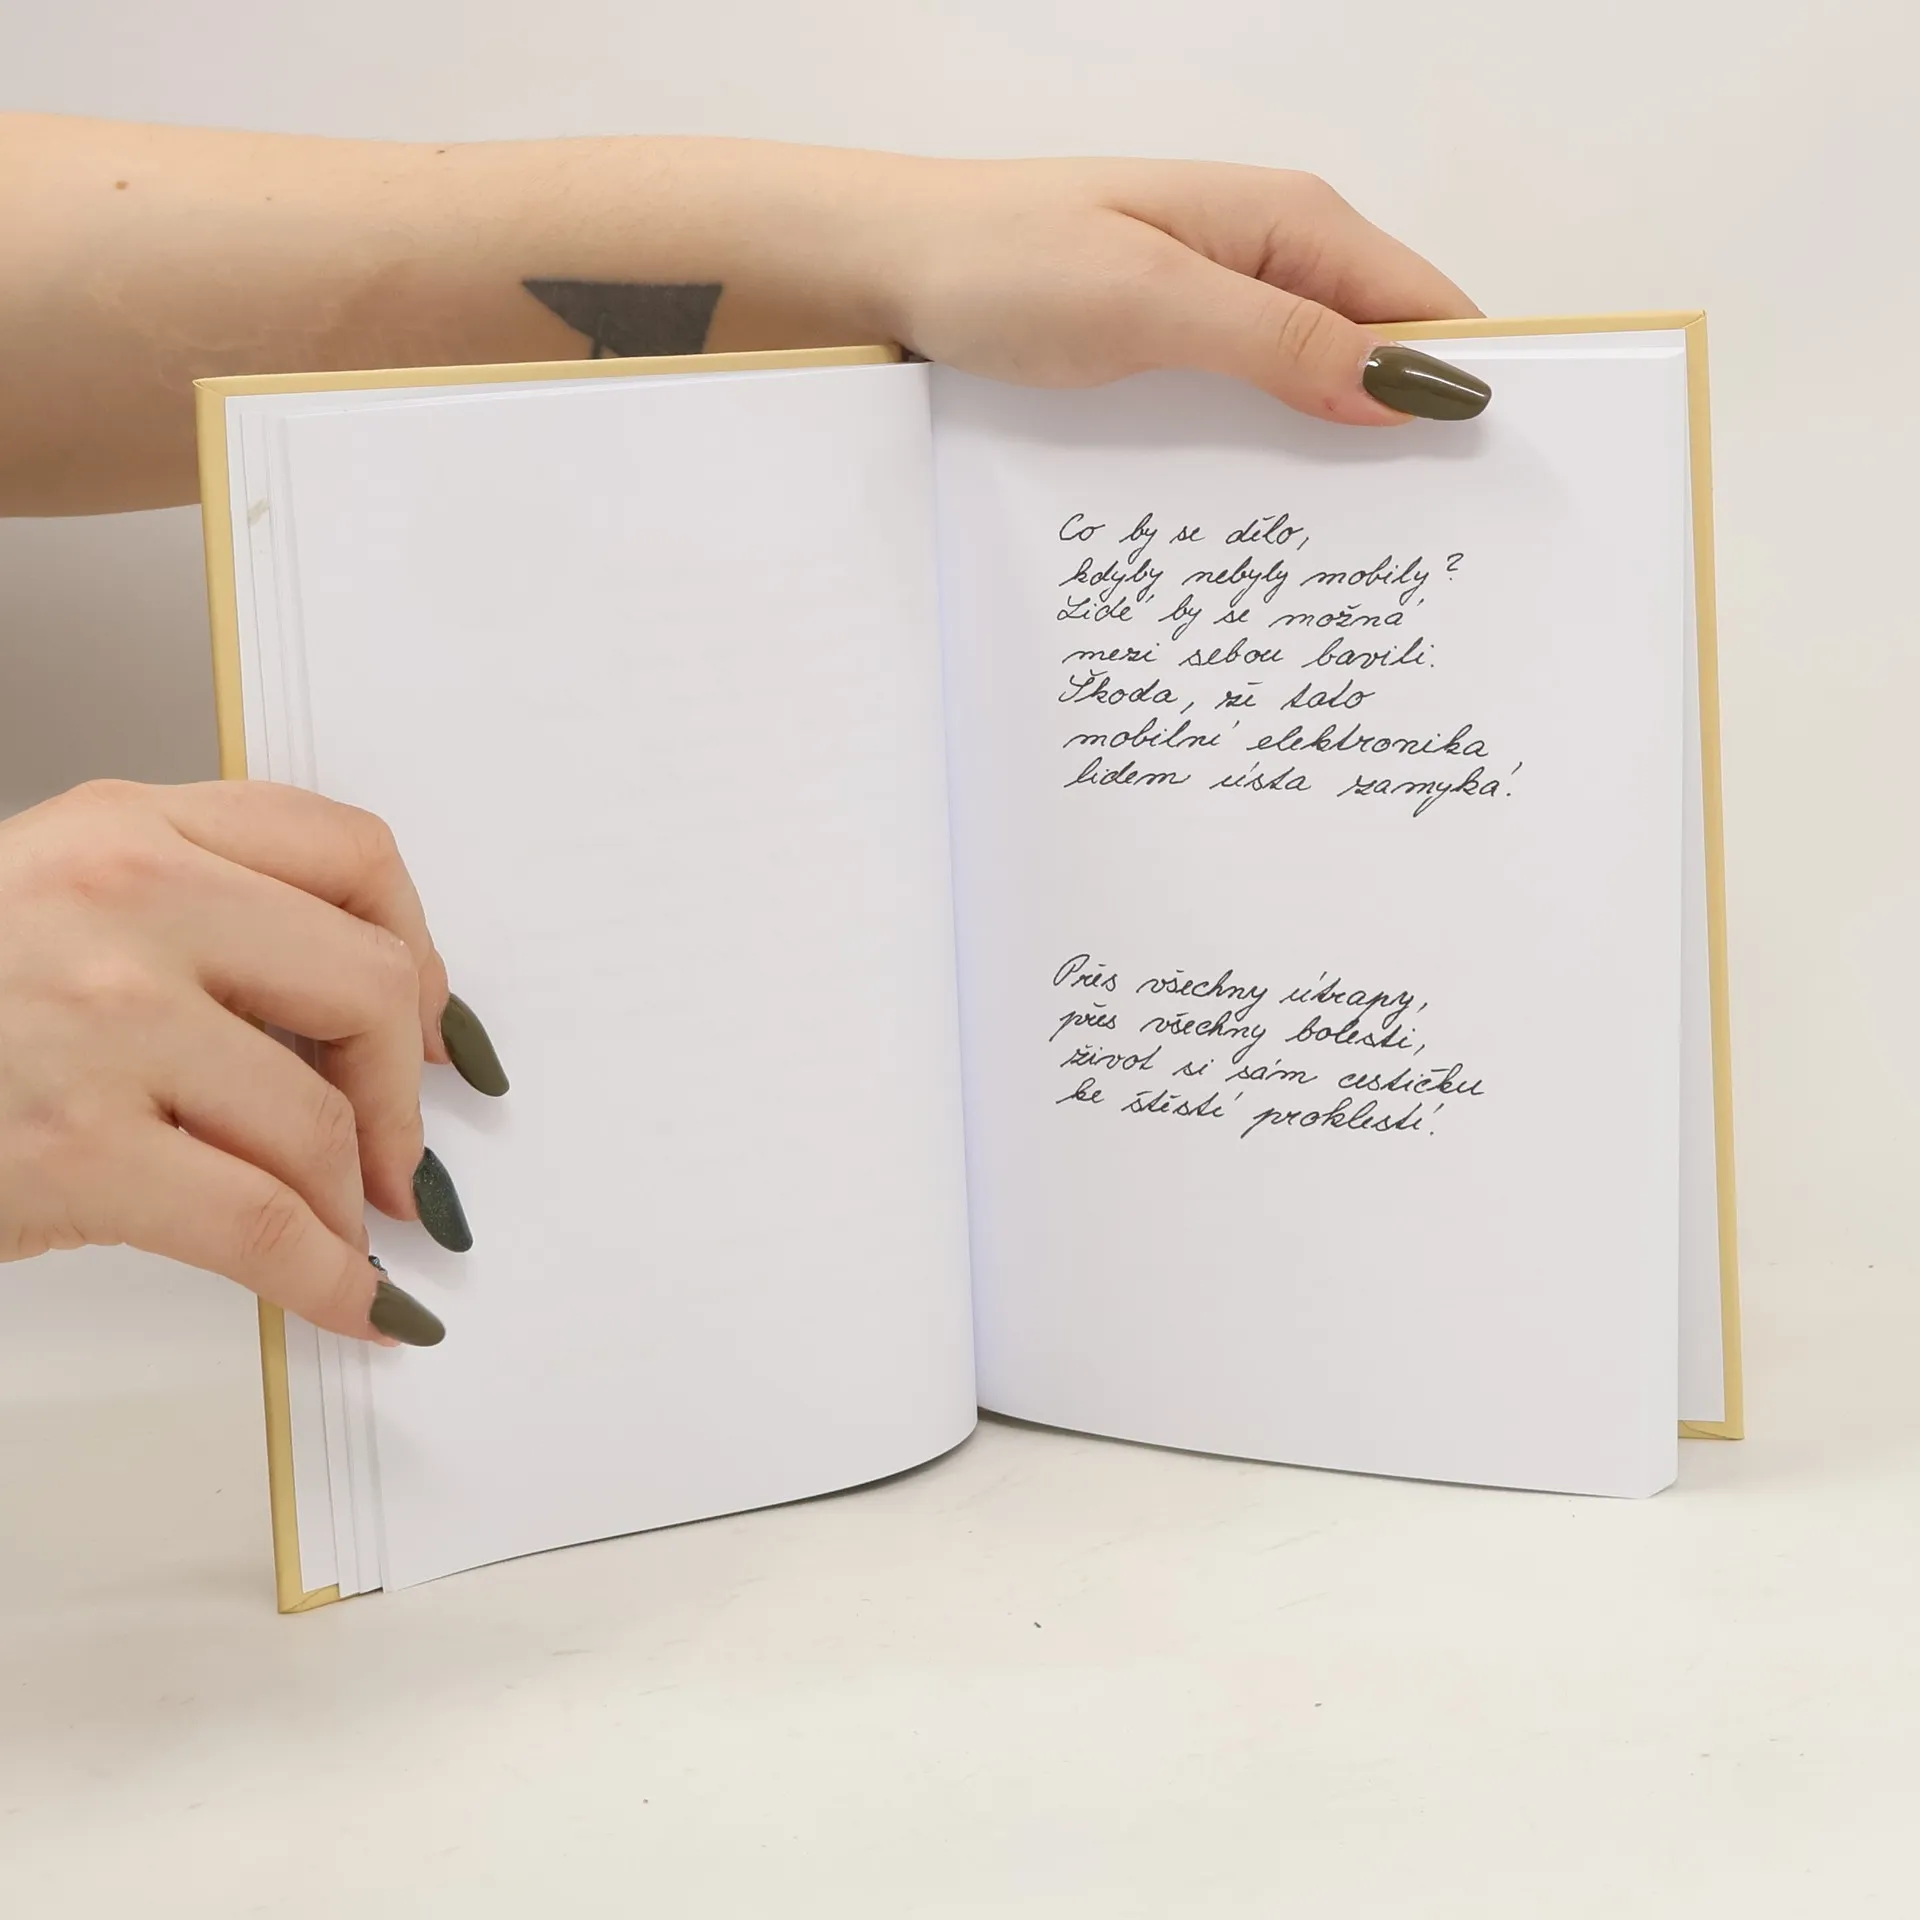 Co by se dělo,
kdyby nebyly mobily?
Lidé by se možná
mezi sebou bavili.
Škoda, že tato
mobilní elektronika
lidem ústa zamyká!
Přes všechny útrapy,
přes všechny bolesti,
život si sám cestičku
ke štěstí proklestí.